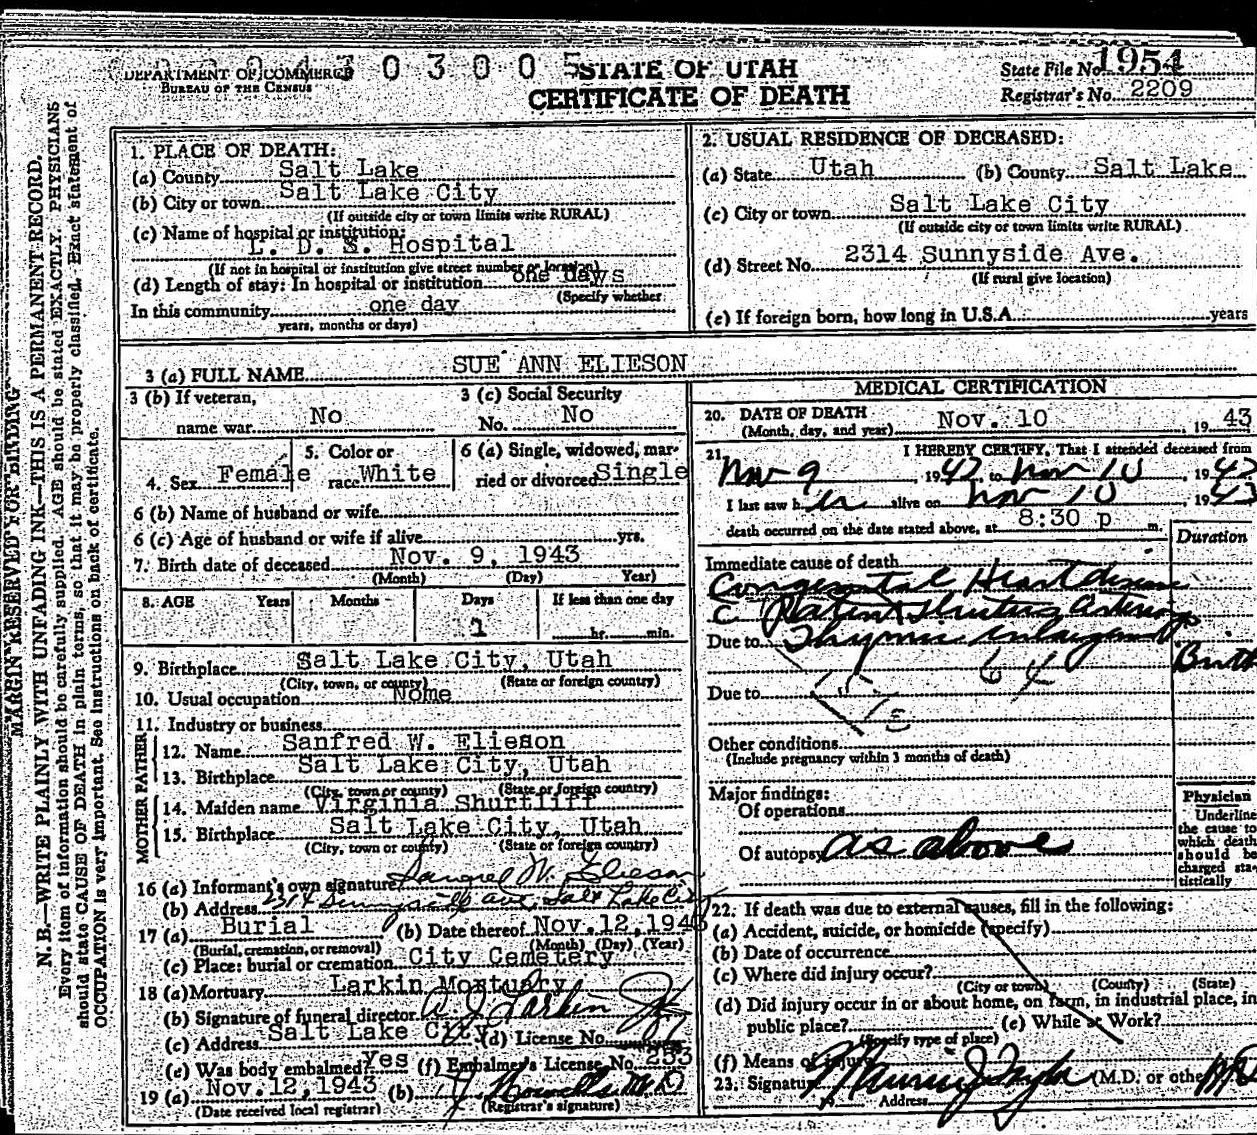 0 3 0 0 5
DEPARTMENT OF COMMERCE
BUREAU OF THE CENSUS
STATE OF UTAH
CERTIFICATE OF DEATH
State File No. 1954
Registrar's No. 2209
MARGIN RESERVED FOR BINDING
N. B.—WRITE PLAINLY WITH UNFADING INK—THIS IS A PERMANENT RECORD.
Every item of information should be carefully supplied. AGE should be stated EXACTLY. PHYSICIANS
should state CAUSE OF DEATH in plain terms, so that it may be properly classified. Exact statement of
OCCUPATION is very important. See instructions on back of certificate.
1. PLACE OF DEATH:
(a) County Salt Lake
(b) City or town Salt Lake City
(If outside city or town limits write RURAL)
(c) Name of hospital or institution:
L. D. S. Hospital
(If not in hospital or institution give street number or location)
(d) Length of stay: In hospital or institution one days
(Specify whether
In this community one day
years, months or days)
2. USUAL RESIDENCE OF DECEASED:
(a) State Utah (b) County Salt Lake
(c) City or town Salt Lake City
(If outside city or town limits write RURAL)
(d) Street No. 2314 Sunnyside Ave.
(If rural give location)
(e) If foreign born, how long in U.S.A. years
3 (a) FULL NAME SUE ANN ELIESON
3 (b) If veteran,
name war No
3 (c) Social Security
No. No
4. Sex Female
5. Color or
race White
6 (a) Single, widowed, mar-
ried or divorced Single
6 (b) Name of husband or wife
6 (c) Age of husband or wife if alive yrs.
7. Birth date of deceased Nov. 9, 1943
(Month) (Day) Year)
8. AGE Years Months Days If less than one day
1 hr. min.
9. Birthplace Salt Lake City, Utah
(City, town, or county) (State or foreign country)
10. Usual occupation Nome
11. Industry or business
FATHER
12. Name Sanfred W. Elieson
13. Birthplace Salt Lake City, Utah
(City, town or county) (State or foreign country)
MOTHER
14. Maiden name Virginia Shurtliff
15. Birthplace Salt Lake City, Utah
(City, town or county) (State or foreign country)
16 (a) Informant's own signature Sanfred W. Elieson
(b) Address 2314 Sunnyside ave, Salt Lake City
17 (a) Burial (b) Date thereof Nov. 12, 194
(Burial, cremation, or removal) (Month) (Day) (Year)
(c) Place: burial or cremation City Cemetery
18 (a) Mortuary Larkin Mortuary
(b) Signature of funeral director A J Larkin Jr
(c) Address Salt Lake City (d) License No.
(e) Was body embalmed? Yes (f) Embalmer's License No. 253
19 (a) Nov. 12, 1943 (b)
(Date received local registrar) (Registrar's signature)
MEDICAL CERTIFICATION
20. DATE OF DEATH Nov. 10, 1943
(Month, day, and year)
21. I HEREBY CERTIFY, That I attended deceased from
Nov 9, 1943 to Nov 10, 1943
I last saw her alive on Nov 10 1943
death occurred on the date stated above, at 8:30 p m.
Duration
Immediate cause of death
Congenital Heart disease
C Patent Ductus Arterios
Due to Thymic enlargement
Birth
Due to
Other conditions
(Include pregnancy within 3 months of death)
Major findings:
Of operations
Of autopsy as above
Physician
Underline
the cause to
which death
should be
charged sta-
tistically
22. If death was due to external causes, fill in the following:
(a) Accident, suicide, or homicide (specify)
(b) Date of occurrence
(c) Where did injury occur?
(City or town) (County) (State)
(d) Did injury occur in or about home, on farm, in industrial place, in
public place? (e) While at Work?
(Specify type of place)
(f) Means of injury
23. Signature (M.D. or othe
19 Address